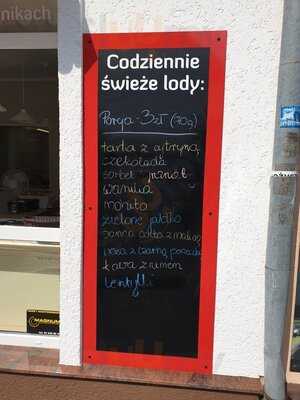 nikach
Codziennie
świeże lody:
Porcja - 3zł (70g)
tarta z cytryną
czekolada
sorbet
wanilia
mohito
zielone jabłko
panna cotta z maliną
z czarną porzeczką
kawa z rumem
Lentylki
MAGNUM